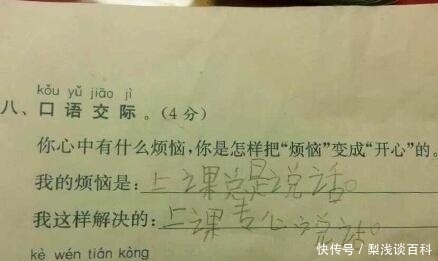 kǒu yǔ jiāo jì
八、口语交际。(4分)
你心中有什么烦恼,你是怎样把“烦恼”变成“开心”的。
我的烦恼是:上课总是说话。
我这样解决的:上课专心说话。
kè wén tián kòng
快传号/梨浅谈百科